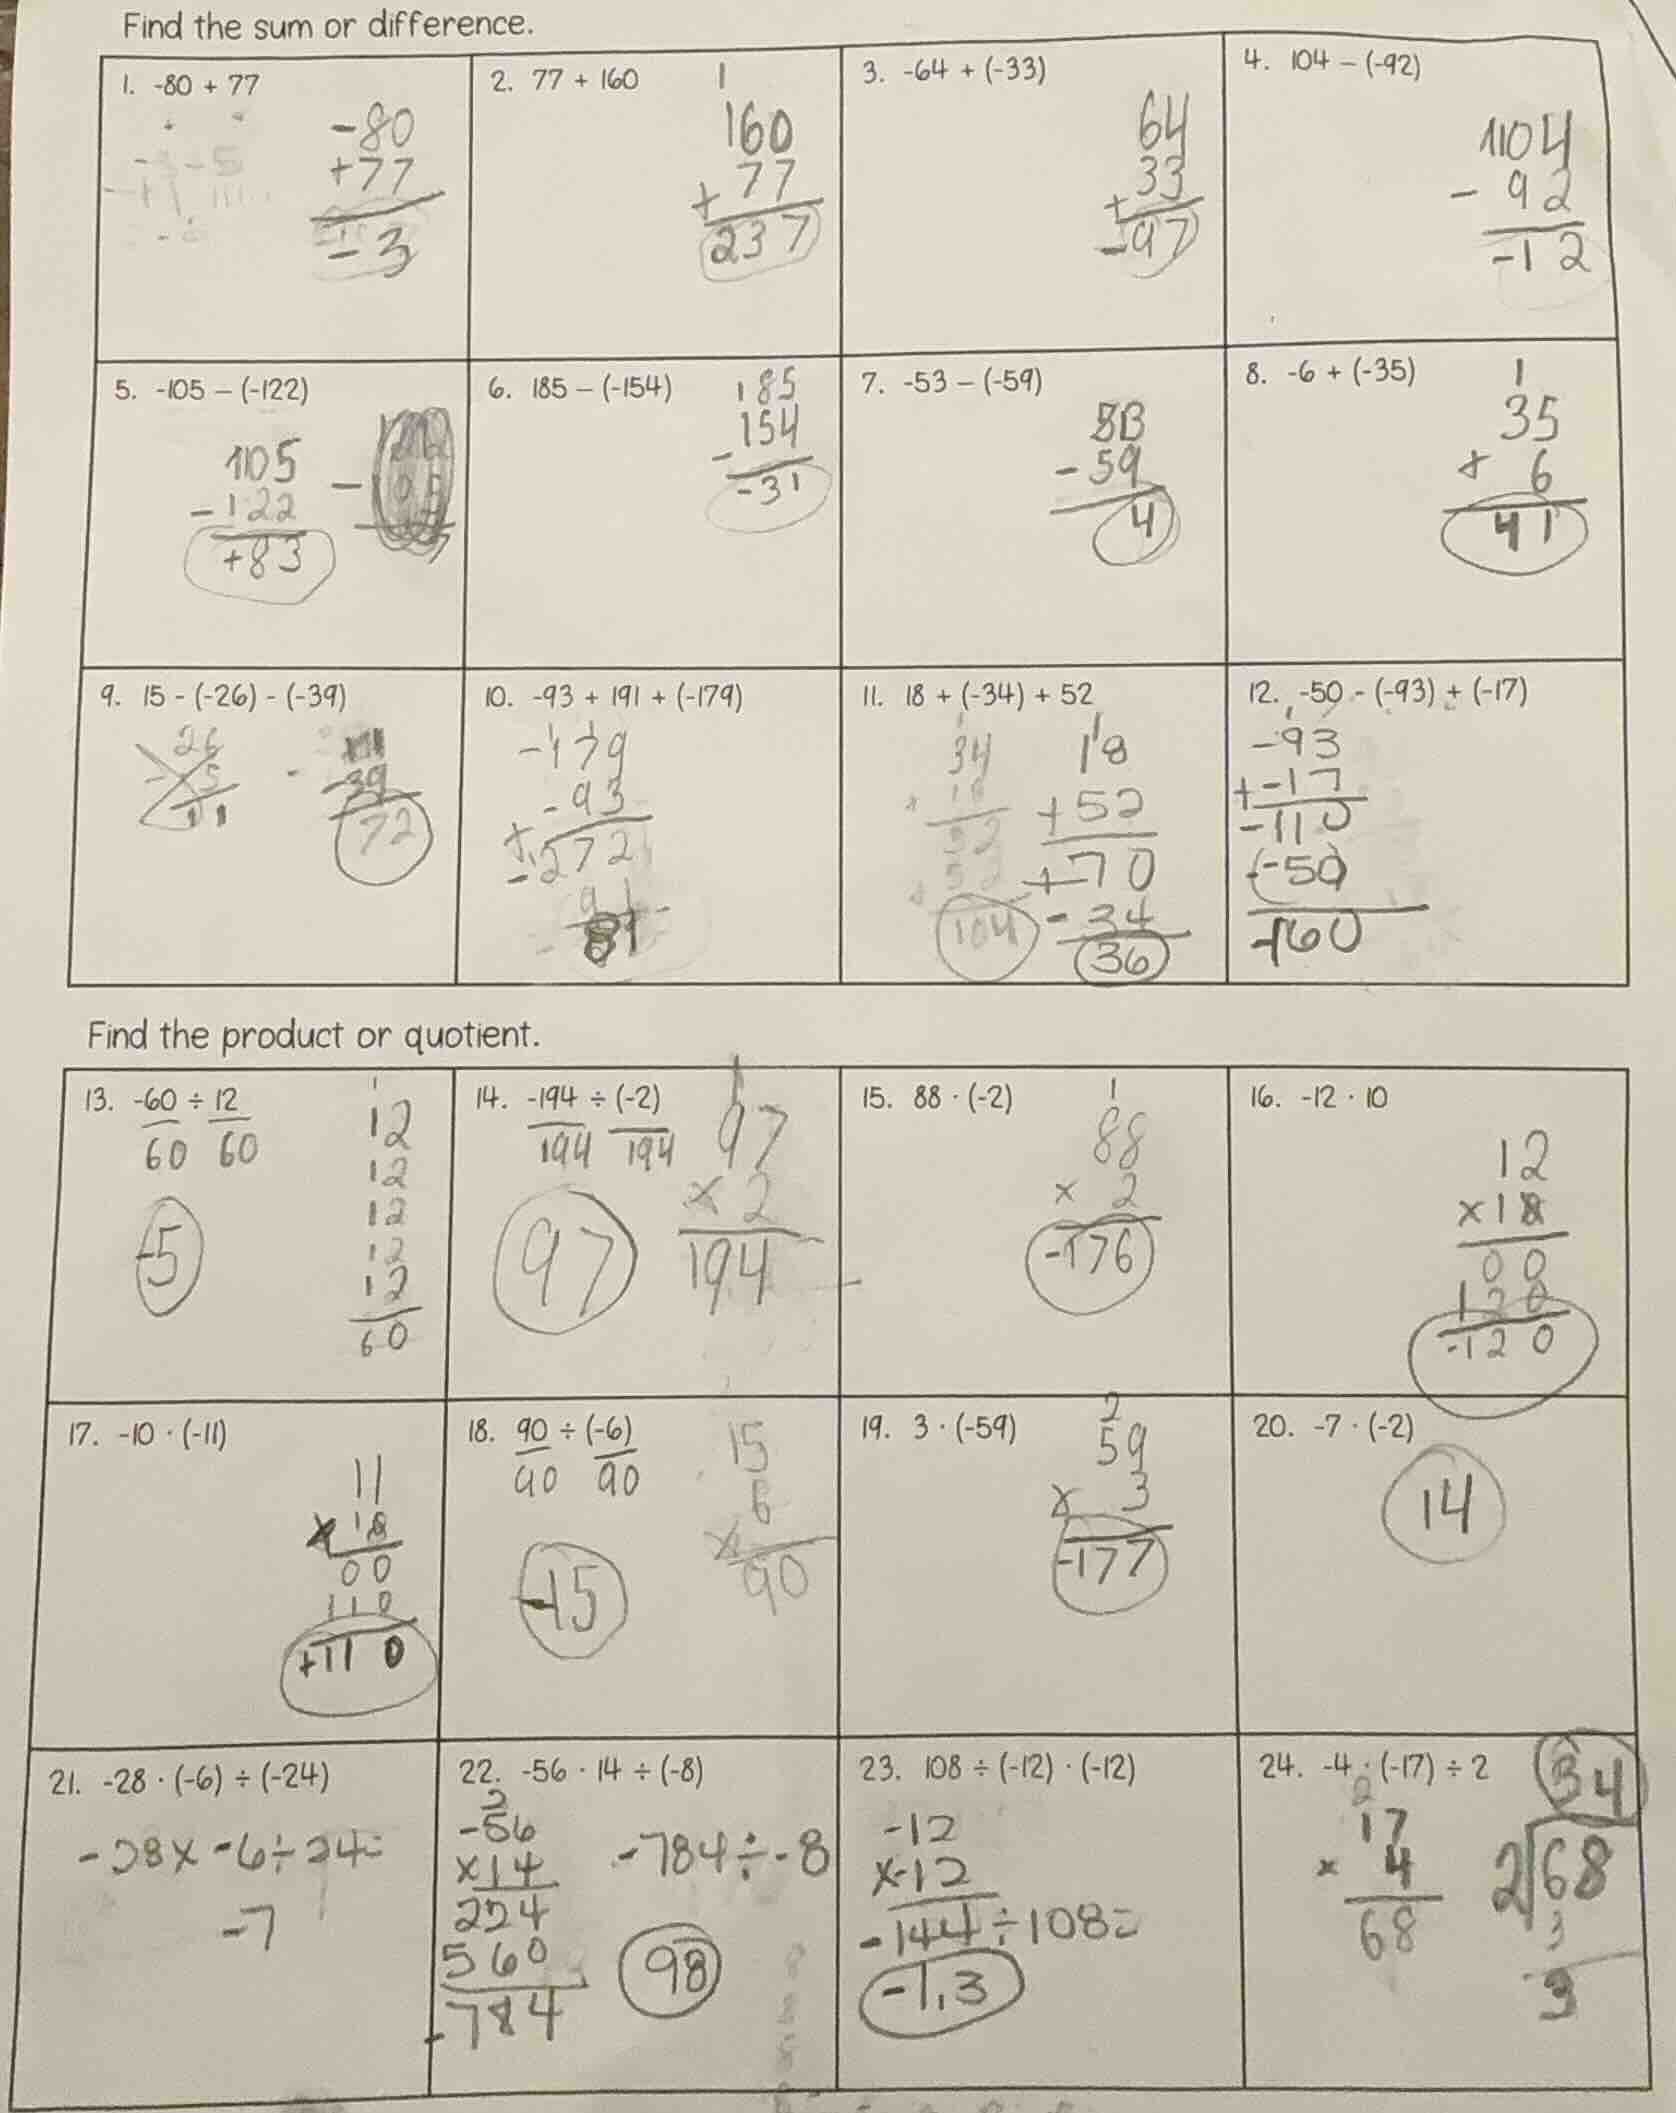 Find the sum or difference.
1. -80 + 77
-80
+77
-3
2. 77 + 160
1
160
+ 77
237
3. -64 + (-33)
64
+ 33
-97
4. 104 – (-92)
1104
- 92
-12
5. -105 – (-122)
105
-122
+83
6. 185 – (-154)
185
- 154
-31
7. -53 – (-59)
53
- 59
4
8. -6 + (-35)
1
35
+ 6
41
9. 15 - (-26) - (-39)
26
- 15
11
-39
72
10. -93 + 191 + (-179)
-179
-93
+
-272
91
81
11. 18 + (-34) + 52
1
34
+ 18
52
+ 52
104
1
18
+52
+70
-34
36
12. -50 - (-93) + (-17)
1
-93
+-17
-110
-50
-160
Find the product or quotient.
13. -60 ÷ 12
60 60
-5
1
12
12
12
12
12
60
14. -194 ÷ (-2)
194 194
97
1
97
× 2
194
15. 88 · (-2)
1
88
× 2
-176
16. -12 · 10
12
×10
00
120
-120
17. -10 · (-11)
11
×10
00
110
+110
18. 90 ÷ (-6)
90 90
-15
15
6
×
90
19. 3 · (-59)
2
59
× 3
-177
20. -7 · (-2)
14
21. -28 · (-6) ÷ (-24)
-28x -6÷24=
-7
22. -56 · 14 ÷ (-8)
2
-56
×14
224
560
-784
-784÷-8
98
23. 108 ÷ (-12) · (-12)
-12
×-12
-144÷108=
-1.3
24. -4 · (-17) ÷ 2
2
17
× 4
68
34
2 68
3
3